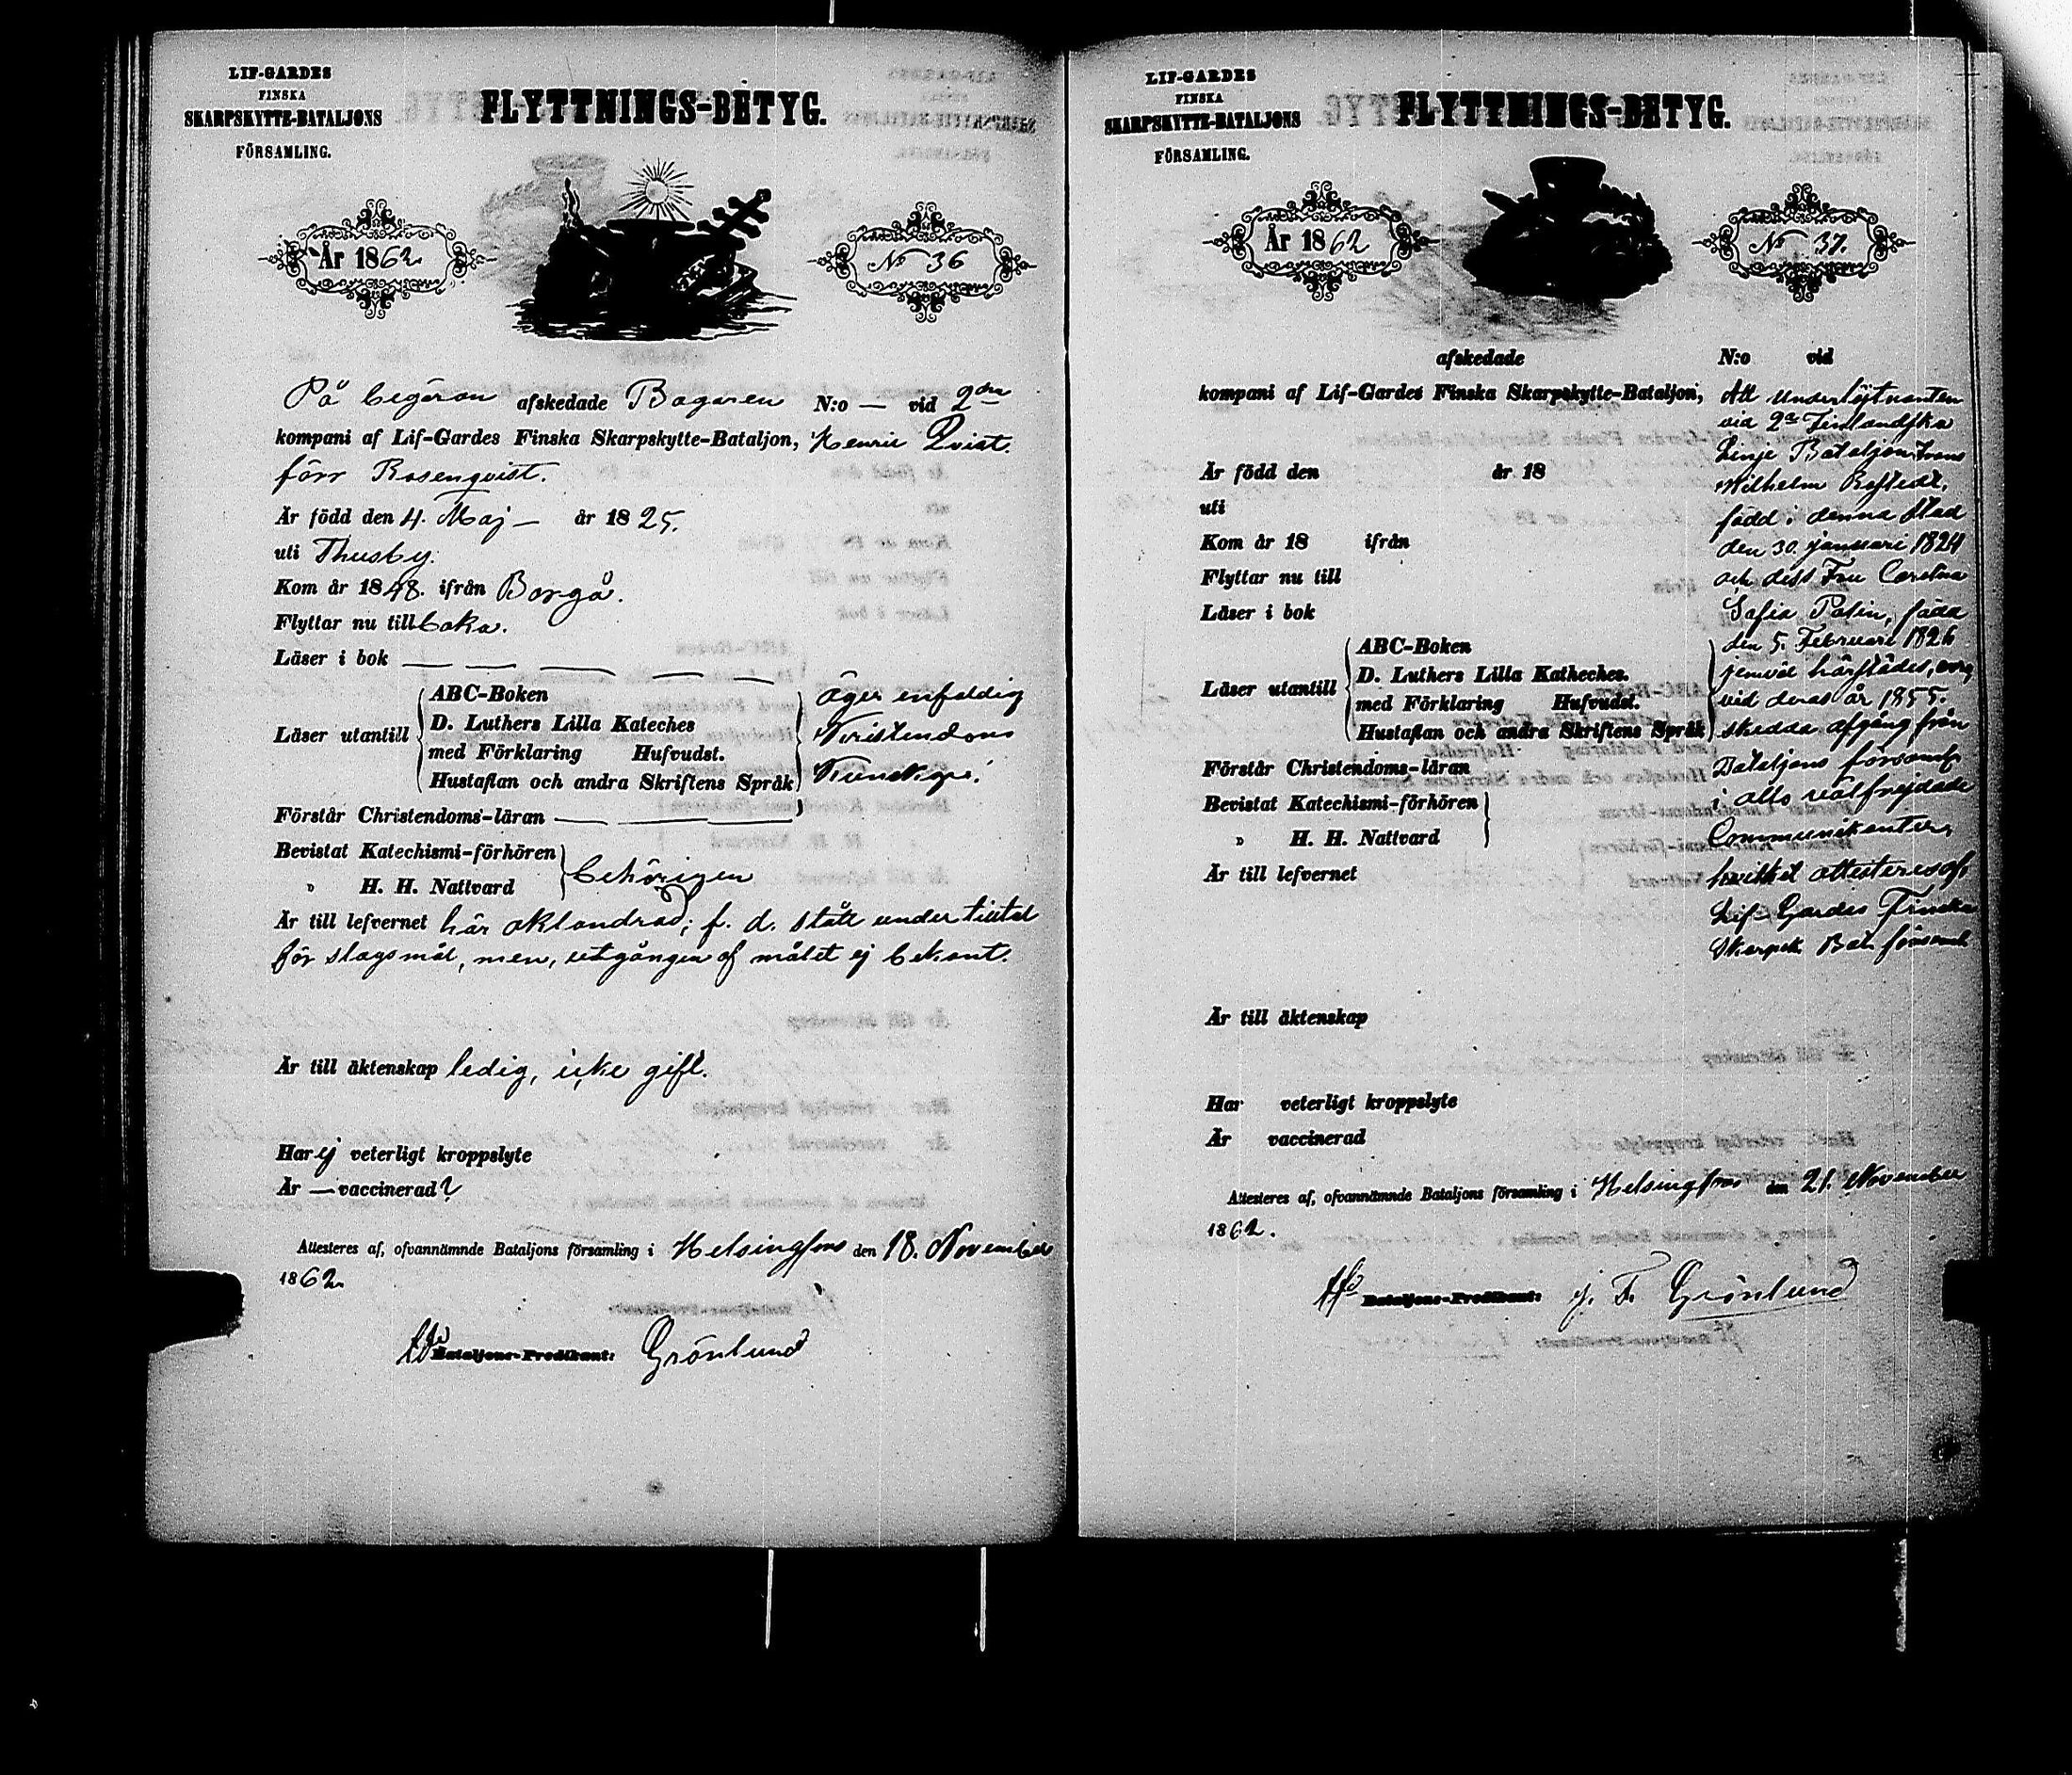 LIF-GARDES
FINSKA
SKARPSKYTTE-BATALJONS
FÖRSAMLING.
FLYTTNINGS-BETYG.
År 1862
No 36
På begäran afskedade Bagaren N:o — vid 2dra
kompani af Lif-Gardes Finska Skarpskytte-Bataljon, Henric Qvist.
förr Rosenqvist.
Är född den 4. Maj — år 1825.
uti Thusby.
Kom år 1848. ifrån Borgå.
Flyttar nu tillbaka.
Läser i bok — — — — —
Läser utantill
ABC-Boken
D. Luthers Lilla Kateches
med Förklaring Hufvudst.
Hustaflan och andra Skriftens Språk
äger enfaldig
Kristendoms
Kunskap.
Förstår Christendoms-läran — — —
Bevistat Katechismi-förhören
" H. H. Nattvard
behörigen
Är till lefvernet här oklandrad; f. d. stått under tiltal
för slagsmål, men, utgången af målet ej bekant.
Är till äktenskap ledig, icke gift.
Har ej veterligt kroppslyte
Är — vaccinerad?
Attesteres af, ofvannämnde Bataljons församling i Helsingfors den 18. November
1862.
Bataljons-Predikant: Grönlund
LIF-GARDES
FINSKA
SKARPSKYTTE-BATALJONS
FÖRSAMLING.
FLYTTNINGS-BETYG.
År 1862
No 37.
afskedade N:o vid
kompani af Lif-Gardes Finska Skarpskytte-Bataljon,
Är född den år 18
uti
Kom år 18 ifrån
Flyttar nu till
Läser i bok
Läser utantill
ABC-Boken
D. Luthers Lilla Katheches.
med Förklaring Hufvudst.
Hustaflan och andra Skriftens Språk
Förstår Christendoms-läran
Bevistat Katechismi-förhören
" H. H. Nattvard
Är till lefvernet
Att Underlöjtnanten
vid 2a Finlandska
Linje Bataljon Frans
Wilhelm
född i denna stad
den 30. januari 1824
och dess Fru Carolina
Sofia född
den 5. Februari 1826
jemväl härstädes, woro
vid deras år 1855.
skedda afgång från
Bataljons församl.
i allo välfrejdade
Communikanter,
hvilket attesteres af,
Lif-Gardes Finska
Skarpsk. Bat. församl.
Är till äktenskap
Har veterligt kroppslyte
Är vaccinerad
Attesteres af, ofvannämnde Bataljons församling i Helsingfors den 21. November
1862.
Bataljons-Predikant: J. F. Grönlund